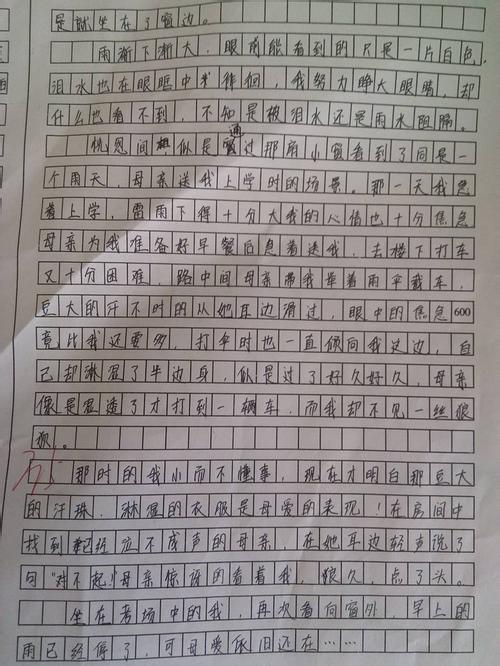 是就坐在了窗边。
雨渐下渐大，眼前能看到的只是一片白色，
泪水也在眼眶中徘徊，我努力睁大眼睛，却
什么也看不到，不知是被泪水还是雨水阻隔。
恍忽间似是通过那扇小窗看到了同是一
个雨天，母亲送我上学时的场景。那一天我急
着上学，雷雨下得十分大我的心情也十分焦急
母亲为我准备好早餐后急着送我，去楼下打车
又十分困难，路中间母亲带我举着雨伞截车，
豆大的汗不时的从她耳边滑过，眼中的焦急600
竟比我还要多，打伞时也一直倾向我这边，自
己却淋湿了半边身，似是过了好久好久，母亲
像是湿透了才打到一辆车，而我却不见一丝狼
狈。
那时的我小而不懂事，现在才明白那豆大
的汗珠，淋湿的衣服是母爱的表现！在房间中
找到已经泣不成声的母亲，在她耳边轻声说了
句“对不起”！母亲惊讶的看着我，很久，点了头。
坐在考场中的我，再次看向窗外，早上的
雨已经停了，可母爱依旧还在……